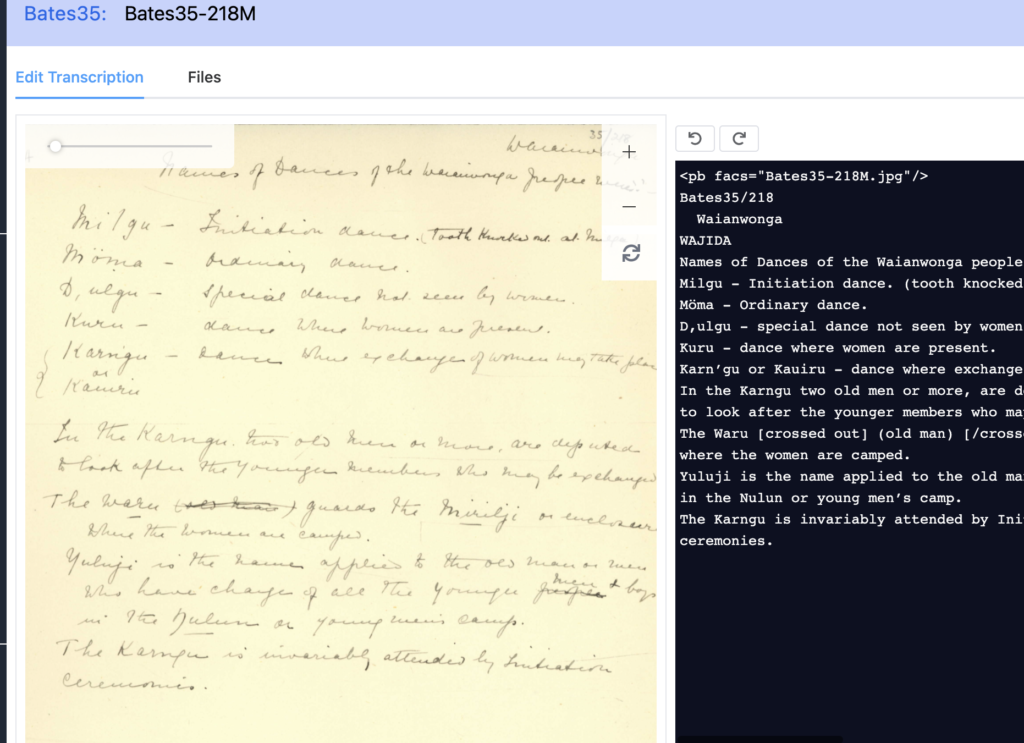 Bates35: Bates35-218M
Edit Transcription Files
35/218
Waianwonga
Names of Dances of the Waianwonga people
Milgu – Initiation dance. (Tooth knocked out at
Möma – Ordinary dance.
D,ulgu – special dance not seen by women.
Kuru – dance where women are present.
Karngu – dance where exchange of women may take place
or
Kauiru
In the Karngu two old men or more, are deputed
to look after the younger members who may be exchanged
The Waru (old man) guards the Mirilji or enclosure
where the women are camped.
Yuluji is the name applied to the old man or men
who have charge of all the younger people men & boys
in the Nulun or young men's camp.
The Karngu is invariably attended by Initiation
Ceremonies.
<pb facs="Bates35-218M.jpg"/>
Bates35/218
Waianwonga
WAJIDA
Names of Dances of the Waianwonga people
Milgu – Initiation dance. (tooth knocked
Möma – Ordinary dance.
D,ulgu – special dance not seen by women
Kuru – dance where women are present.
Karn’gu or Kauiru – dance where exchange
In the Karngu two old men or more, are d
to look after the younger members who ma
The Waru [crossed out] (old man) [/cross
where the women are camped.
Yuluji is the name applied to the old ma
in the Nulun or young men’s camp.
The Karngu is invariably attended by Ini
ceremonies.